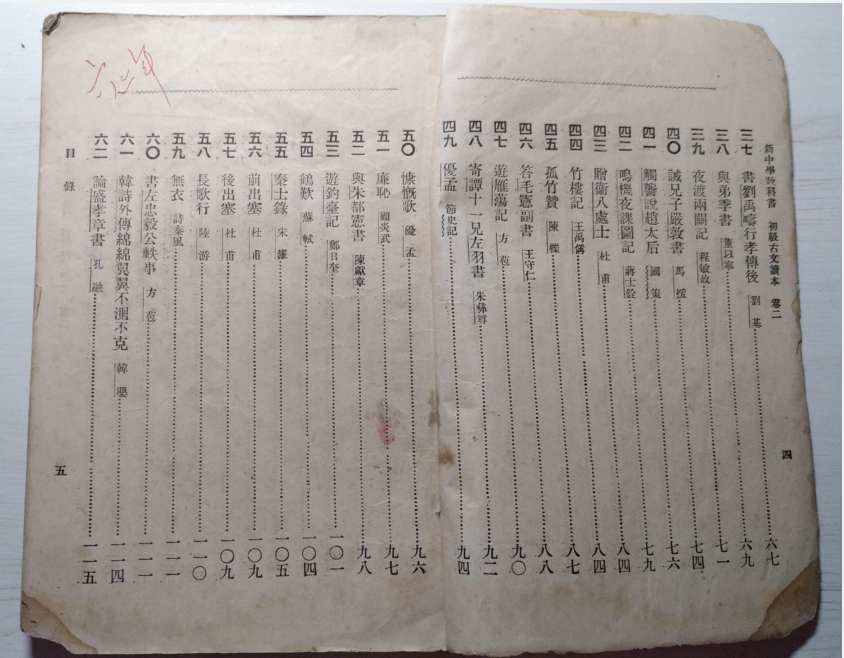 新中學教科書 初級古文讀本 卷二
四
三七 書劉禹疇行孝傳後 劉基 六七
三八 與弟季書 董以寧 六九
三九 夜渡兩關記 程敏政 七一
四〇 誡兄子嚴敦書 馬援 七四
四一 觸讋說趙太后 國策 七六
四二 鳴機夜課圖記 蔣士銓 七九
四三 贈衛八處士 杜甫 八四
四四 竹樓記 王禹偁 八四
四五 孤竹贊 陳櫟 八七
四六 答毛憲副書 王守仁 八八
四七 遊雁蕩記 方苞 九〇
四八 寄譚十一兄左羽書 朱彝尊 九二
四九 優孟 節史記 九四
五〇 慷慨歌 優孟 九六
五一 廉恥 顧炎武 九七
五二 與朱都憲書 陳獻章 九八
五三 遊釣臺記 鄭日奎 一〇一
五四 鶴歎 蘇軾 一〇四
五五 秦士錄 宋濂 一〇五
五六 前出塞 杜甫 一〇九
五七 後出塞 杜甫 一〇九
五八 長歌行 陸游 一一〇
五九 無衣 詩秦風 一一一
六〇 書左忠毅公軼事 方苞 一一一
六一 韓詩外傳綿綿翼翼不測不克 韓嬰 一一四
六二 論盛孝章書 孔融 一一五
目錄
五